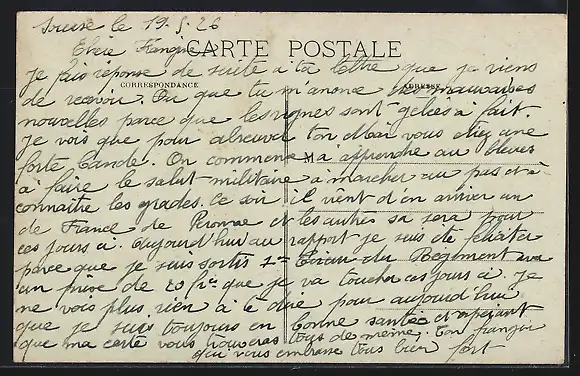 Sousse le 19.5.26
Chère Frangine
CARTE POSTALE
Je fais réponse de suite à ta lettre que je viens
CORRESPONDANCE
ADRESSE
de recevoir. Ou que tu m'anonce des mauvaises
nouvelles parce que les vignes sont gelées à fait.
Je vois que pour abreuver ton Mai vous etiez une
forte bande. On commence a apprendre au bleus
à faire le salut militaire à marcher au pas et à
connaître les grades. Ce soir il vient d'en arriver un
de France de Peronne et les autres sa sera pour
ces jours ci. Aujourd'hui au rapport je suis été féliciter
parce que je suis sortis 1er du Régiment
un prise de 20 frs que je va toucher ces jours ci. Je
ne vois plus rien à te dire pour aujourd'hui
que je suis toujours en bonne santée et espérant
que ma carte vous trouveras tous de meme. Ton frangin
qui vous embrasse tous bien fort